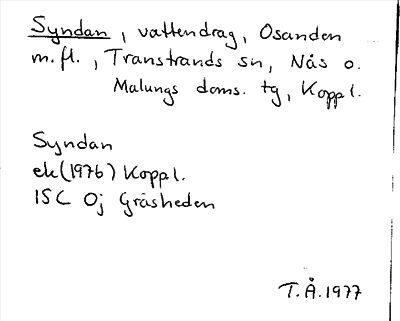 Syndan, vattendrag, Osanden
m.fl., Transtrands sn, Nås o.
Malungs doms. tg, Koppl.
Syndan
ek (1976) Koppl.
ISC Oj Gräsheden
T.Å.1977